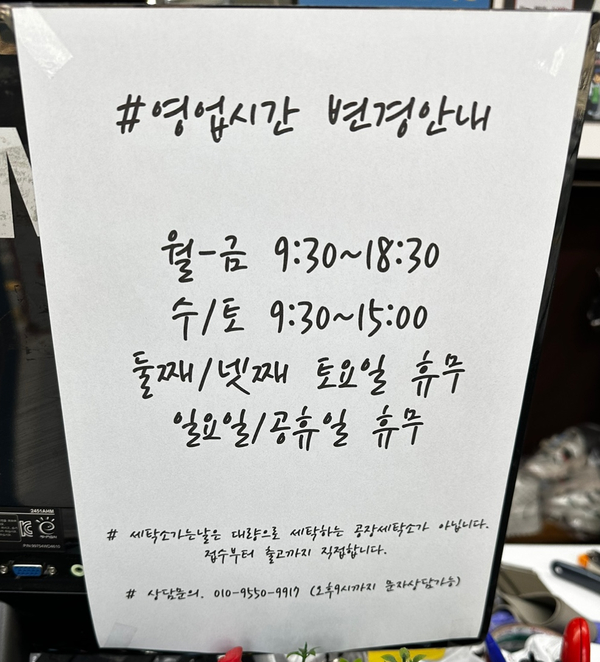 #영업시간 변경안내
월-금 9:30~18:30
수/토 9:30~15:00
둘째/넷째 토요일 휴무
일요일/공휴일 휴무
# 세탁소가는날은 대량으로 세탁하는 공장세탁소가 아닙니다.
접수부터 출고까지 직접합니다.
# 상담문의. 010-9550-9917 (오후9시까지 문자상담가능)
2451AHM